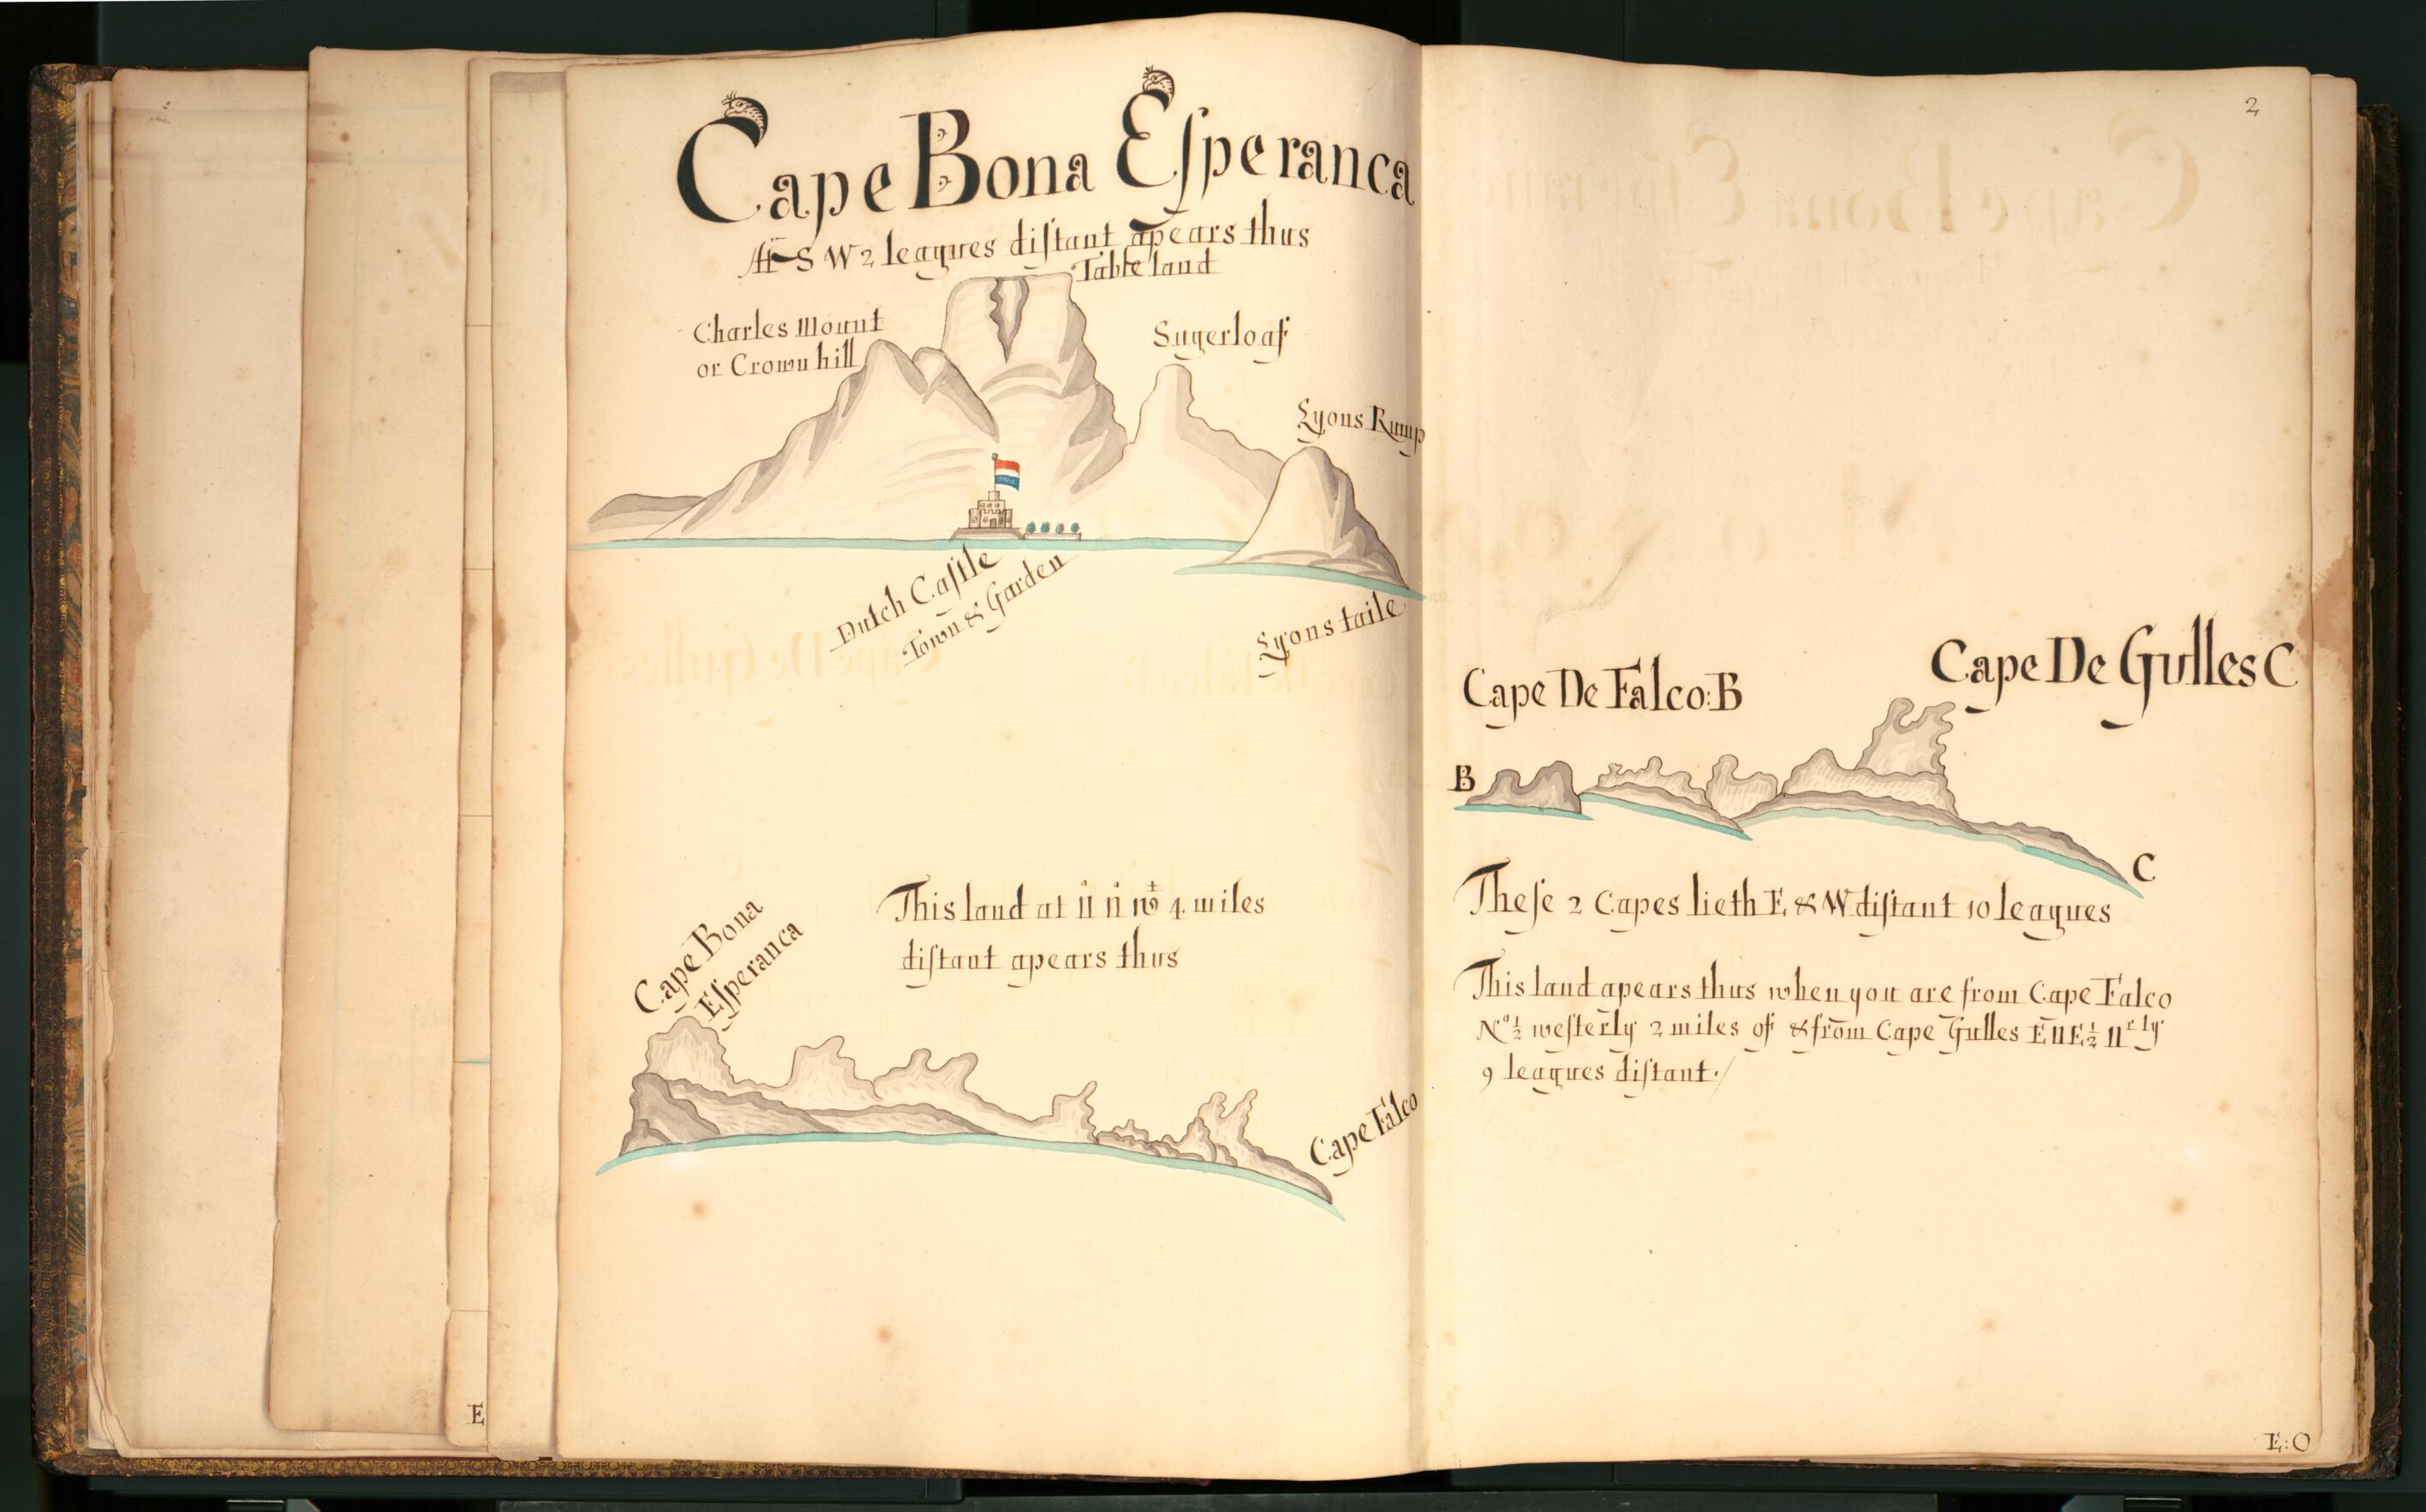 Cape Bona Eſperanca
At S W 2 leagues diſtant apears thus
Table land
Charles Mount
or Crown hill
Sugerloaf
Lyons Rump
Dutch Caſtle
Town & Garden
Lyons taile
Cape Bona
Eſperanca
This land at 4 miles
diſtant apears thus
Cape Falco
2
Cape De Falco:B
Cape De Gulles C
B
C
Theſe 2 Capes lieth E & W diſtant 10 leagues
This land apears thus when you are from Cape Falco
N° ½ weſterly 2 miles of & from Cape Gulles E N E ½ N r ly
9 leagues diſtant./
E
E:O